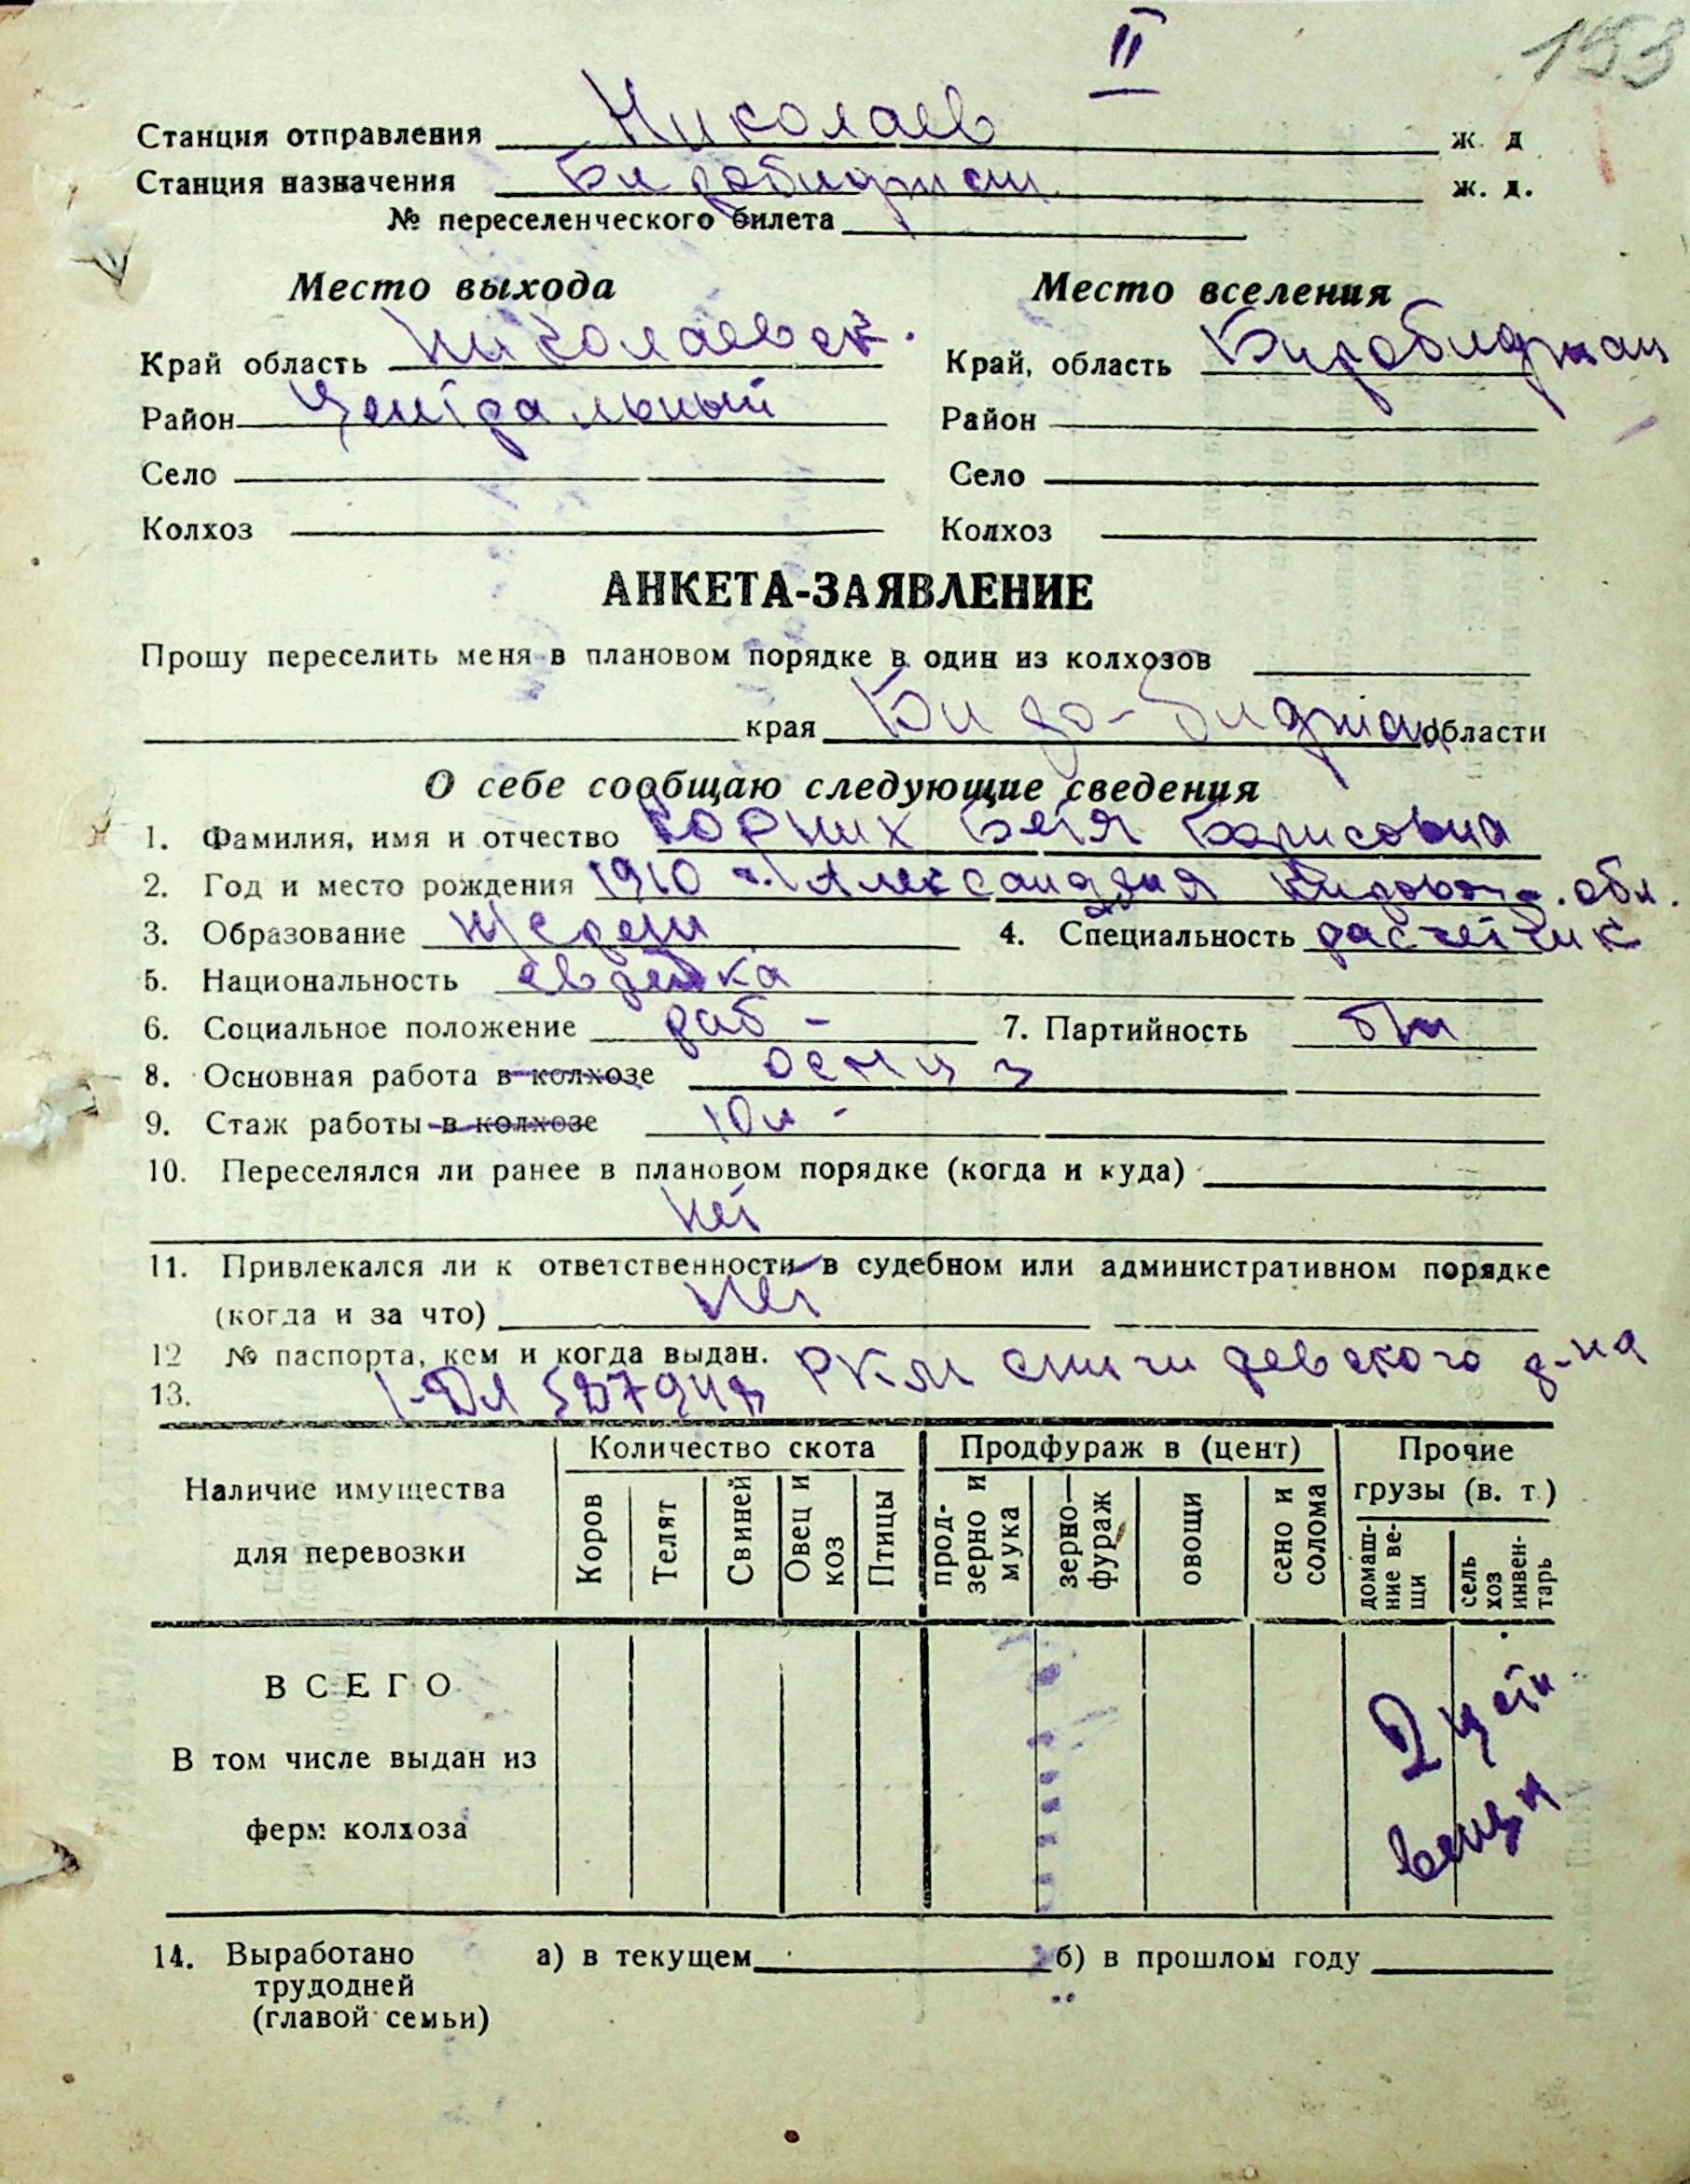 II
153
Станция отправления Николаев ж. д
Станция назначения Биробиджан ж. д.
№ переселенческого билета
Место выхода Место вселения
Край область Николаевск. Край, область Биробиджан
Район Центральный Район
Село Село
Колхоз Колхоз
АНКЕТА-ЗАЯВЛЕНИЕ
Прошу переселить меня в плановом порядке в один из колхозов
края Биро-Биджан области
О себе сообщаю следующие сведения
1. Фамилия, имя и отчество Корних Бетя Борисовна
2. Год и место рождения 1910 г. Александрия обл.
3. Образование 4. Специальность расчетчик
5. Национальность еврейка
6. Социальное положение раб - 7. Партийность б/п
8. Основная работа в колхозе
9. Стаж работы в колхозе 10 л -
10. Переселялся ли ранее в плановом порядке (когда и куда)
нет
11. Привлекался ли к ответственности в судебном или административном порядке
(когда и за что) нет
12 № паспорта, кем и когда выдан. РКМ Снигиревского р-на
13.
Наличие имущества для перевозки
Количество скота
Продфураж в (цент)
Прочие грузы (в. т.)
Коров
Телят
Свиней
Овец и коз
Птицы
прод-зерно и мука
зерно-фураж
овощи
сено и солома
домаш-ние ве-щи
сель хоз инвен-тарь
ВСЕГО
В том числе выдан из
ферм колхоза
2 цетн
вещи
14. Выработано а) в текущем б) в прошлом году
трудодней
(главой семьи)